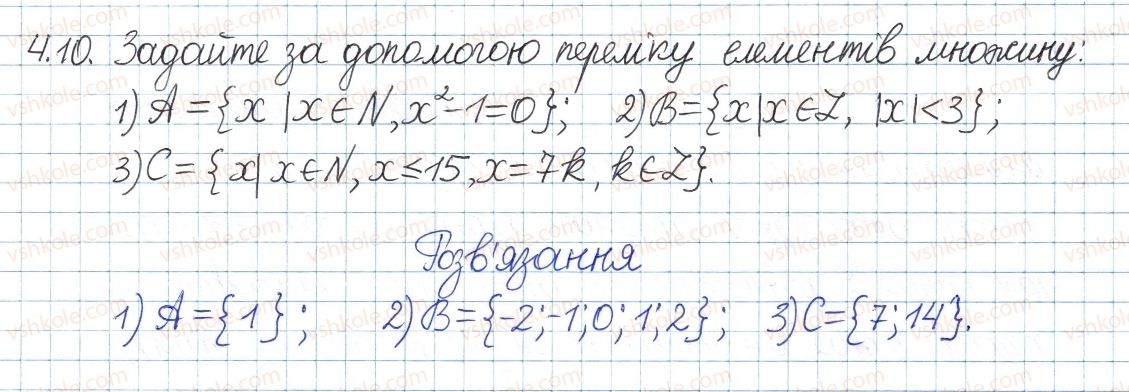 4.10. Задайте за допомогою переліку елементів множину:
1) A = {x | x ∈ N, x² - 1 = 0}; 2) B = {x | x ∈ Z, |x| < 3};
3) C = {x | x ∈ N, x ≤ 15, x = 7k, k ∈ Z}.
Розв'язання
1) A = {1}; 2) B = {-2; -1; 0; 1; 2}; 3) C = {7; 14}.